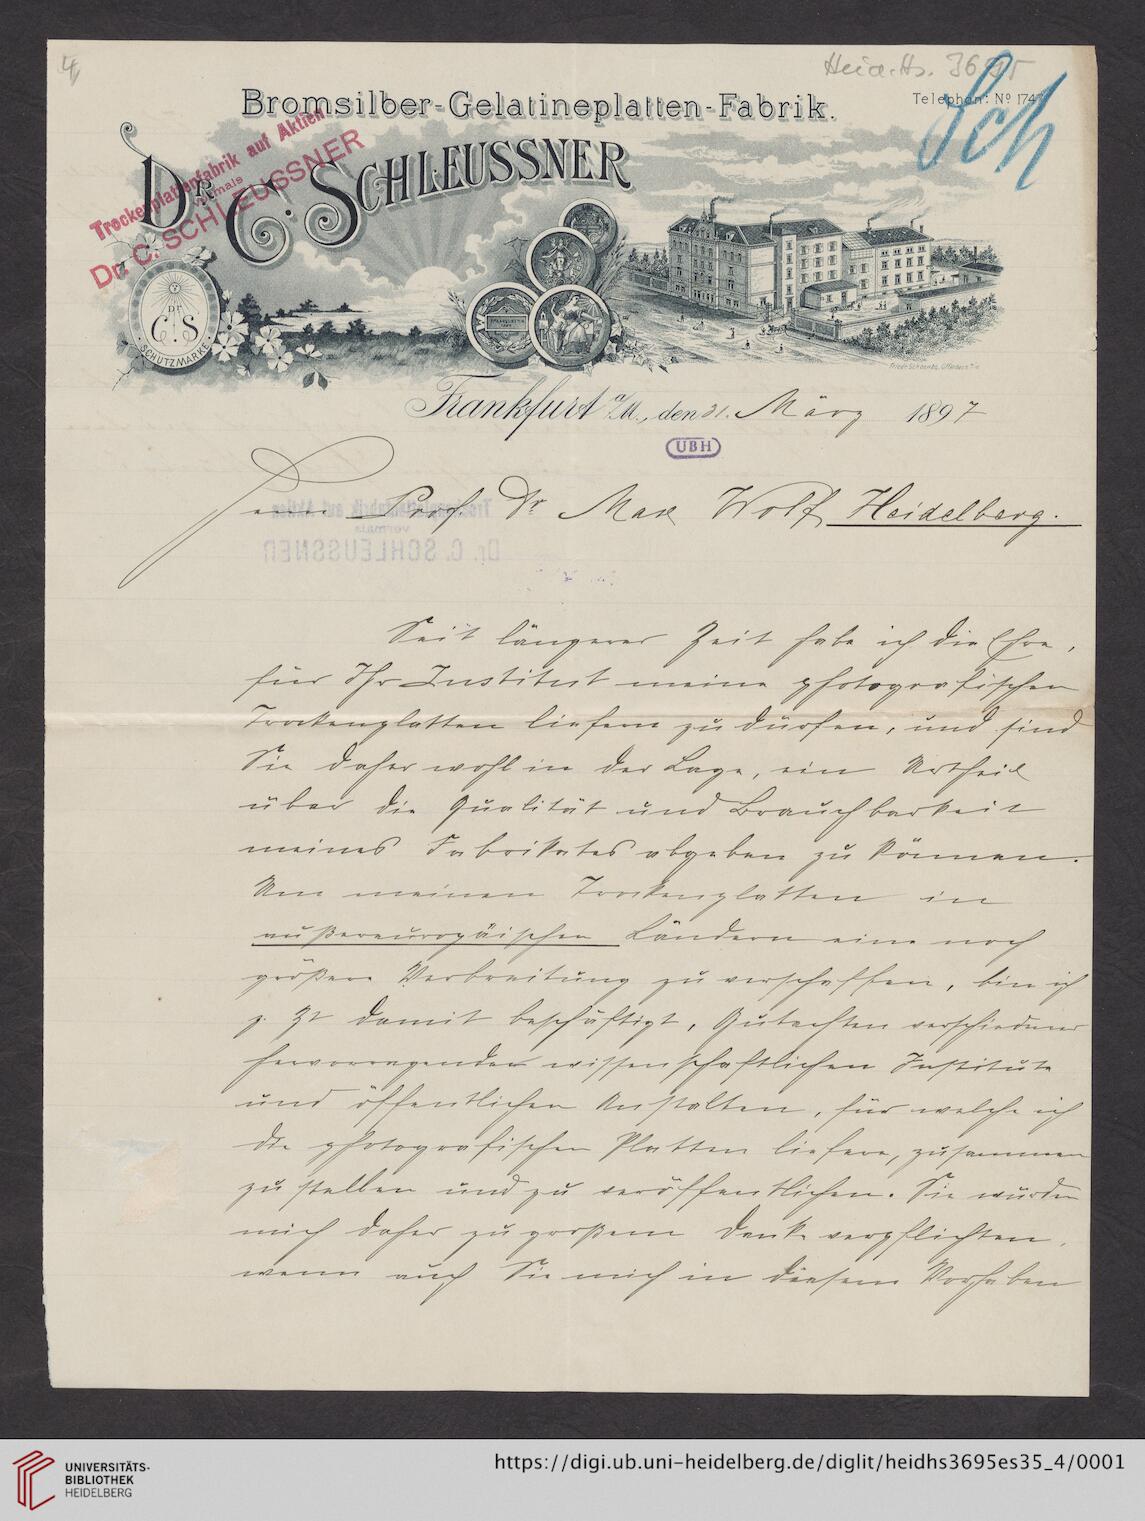 4
Heid. Hs. 3695
Sch
Bromsilber-Gelatineplatten-Fabrik.
Telephon: No 1747
Trockenplattenfabrik auf Aktien
vormals
Dr. C. SCHLEUSSNER
DR. C. SCHLEUSSNER
DR
C S
SCHUTZMARKE
Frankfurt a/M., den 31. März 1897
UBH
Herrn Prof. Dr Max Wolf, Heidelberg.
Trockenplattenfabrik auf Aktien
vormals
Dr. C. SCHLEUSSNER
Seit längerer Zeit habe ich die Ehre,
für Ihr Institut meine photografischen
Trockenplatten liefern zu dürfen, und sind
Sie daher wohl in der Lage, ein Urtheil
über die Qualität und Brauchbarkeit
meines Fabrikates abgeben zu können.
Um meinen Trockenplatten in
außereuropäischen Ländern eine noch
größere Verbreitung zu verschaffen, bin ich
z. Zt damit beschäftigt, Gutachten verschiedener
hervorragender wissenschaftlichen Institute
und öffentlichen Anstalten, für welche ich
die photografischen Platten liefere, zusammen
zu stellen und zu veröffentlichen. Sie würden
mich daher zu großem Dank verpflichten,
wenn auch Sie mich in diesem Vorhaben
UNIVERSITÄTS-
BIBLIOTHEK
HEIDELBERG
https://digi.ub.uni-heidelberg.de/diglit/heidhs3695es35_4/0001